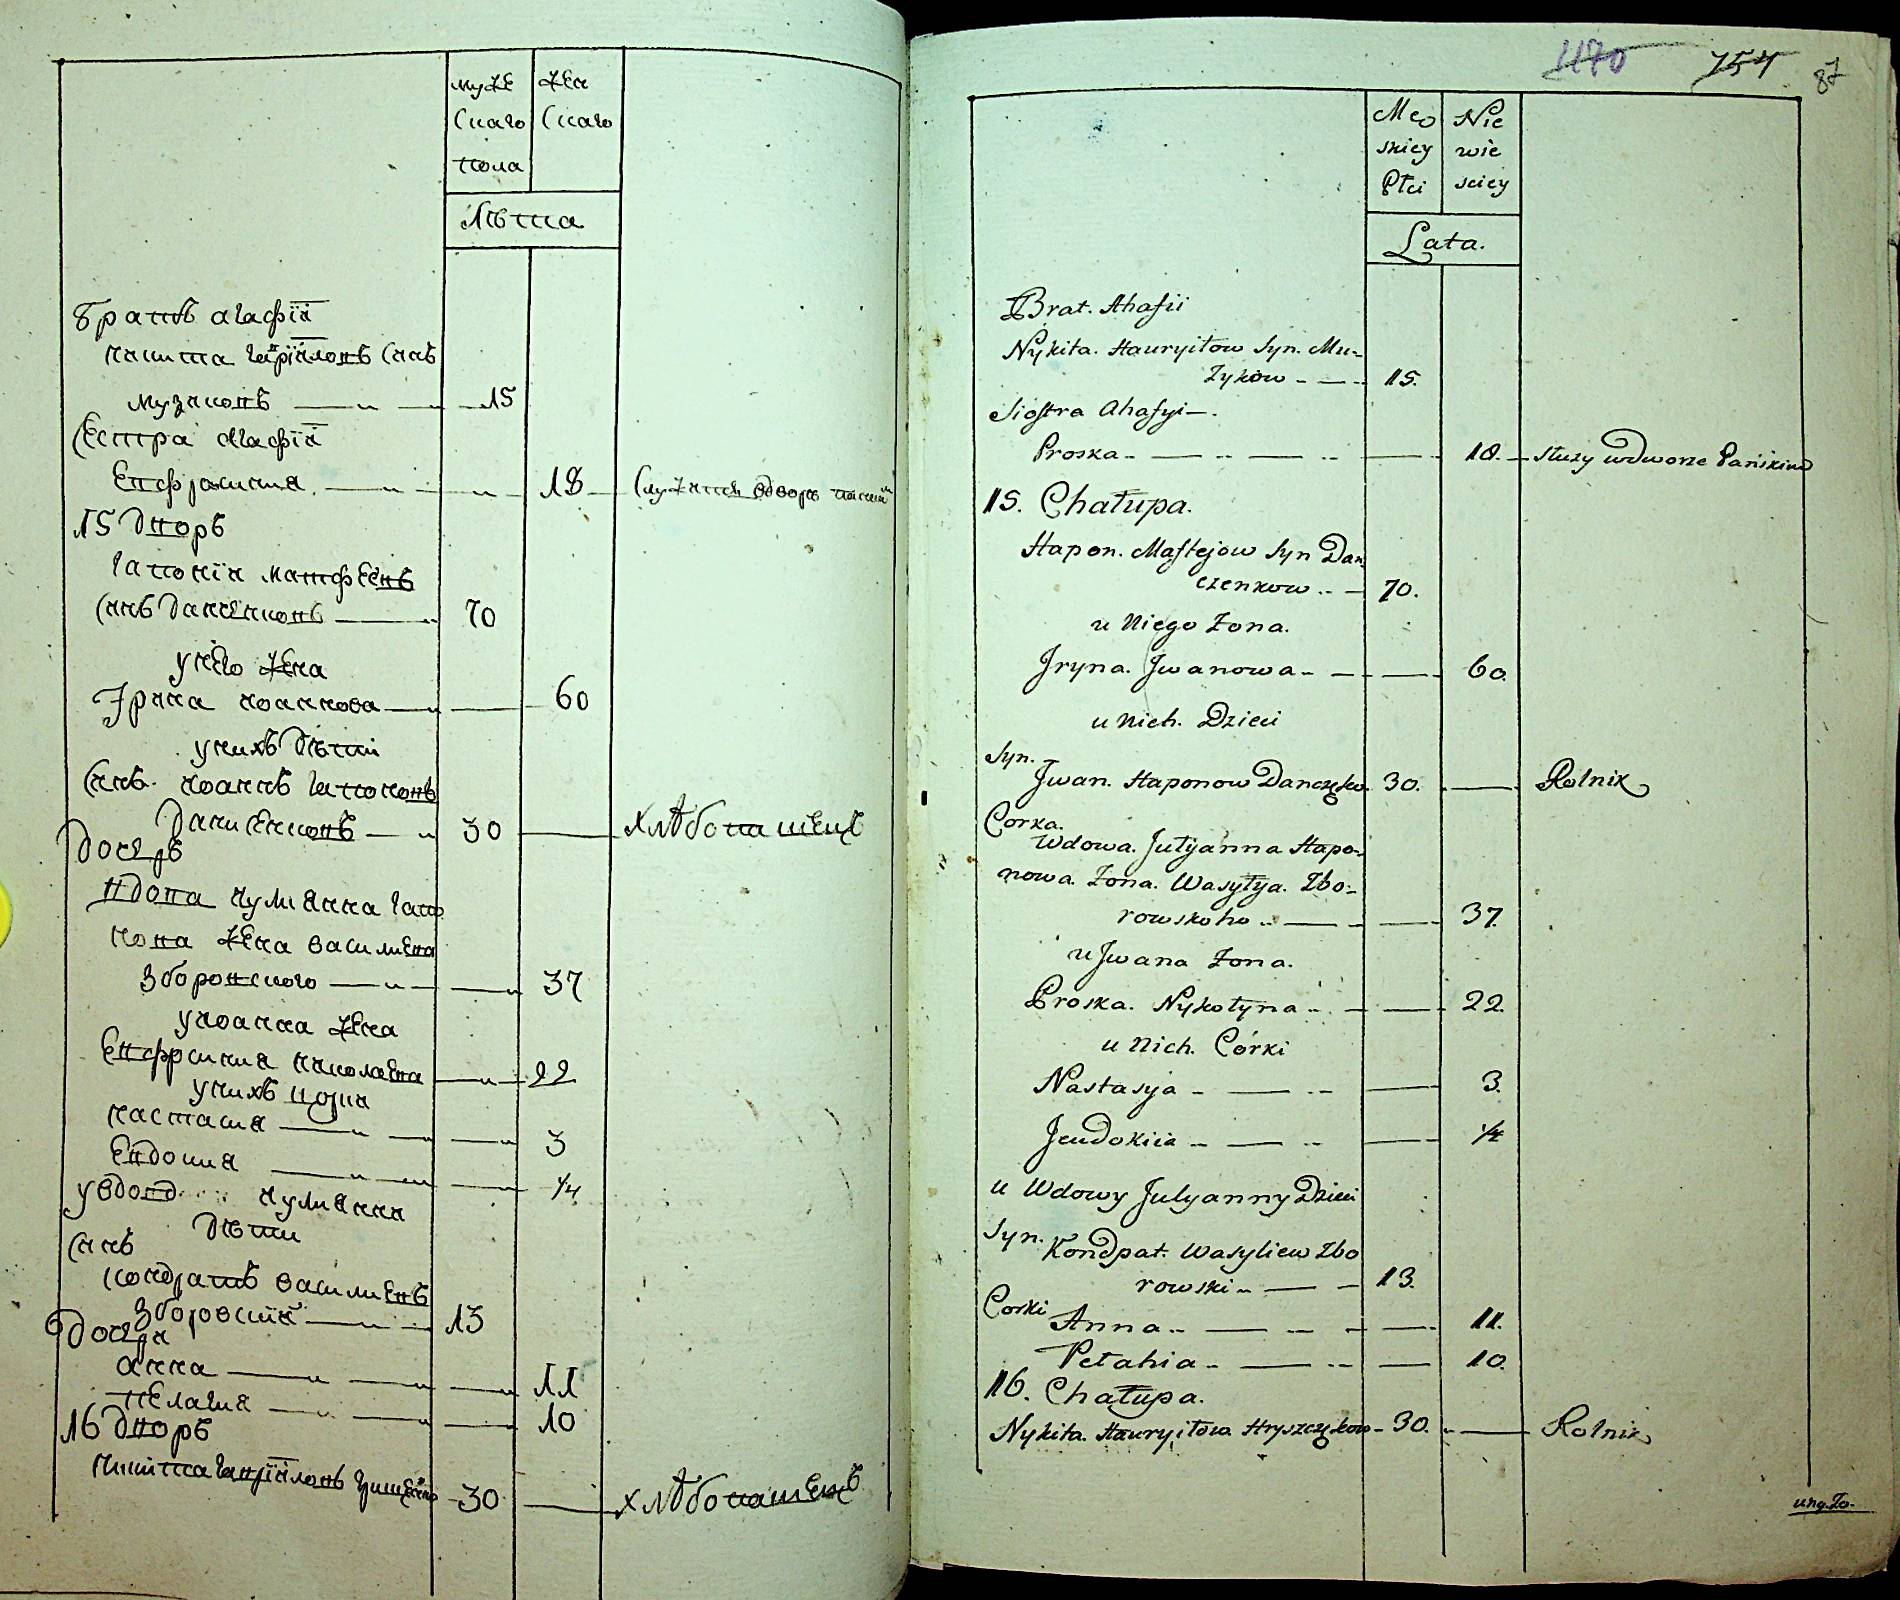 муже
скаго
пола
жен
скаго
Лѣта
братъ агафіи
никита гавріиловъ синъ
музиковъ 15
сестра агафіи
Евфросиния 18 служитъ вдворѣ панскій
15 дворъ
гапонъ матфеевъ
синъ данченковъ 70
унего жена
Ирина иоаннова 60
унихъ дѣти
синъ иоаннъ гапоновъ
данченковъ 30 хлѣбопашецъ
дочерь
вдова иулианна гапо
нова жена василиева
зборовского 37
уиоанна жена
Евфросиния николаева 22
унихъ дочки
настасия 3
Евдокия 1/4
увдови иулианни
дѣти
синъ
кондратъ василиевъ
зборовский 13
дочери
анна 11
пелагия 10
16 дворъ
никита гавріиловъ гришченко 30 хлѣбопашецъ
1170 754 87
Męs
skiey
Płci
Nie
wie
sciey
Lata.
Brat. Ahafii
Nykita. Hauryiłow Syn. Mu-
zykow 15.
Siostra Ahafyi
Proska 18. służy wdworze Pańskim
15. Chałupa.
Hapon. Maftejow Syn Dan-
czenkow 70.
u Niego Żona.
Jryna. Jwanowa 60.
u Nich. Dzieci
Syn.
Jwan. Haponow Danczęko 30. Rolnik
Corka.
Wdowa. Julyanna Hapo-
nowa. Żona. Wasylya. Zbo-
rowskoho 37.
u Jwana Żona.
Proska. Nykołyna 22.
u Nich. Córki
Nastasya 3.
Jeudokiia 1/4
u Wdowy Julyanny Dzieci
Syn.
Kondpat. Wasyliew Zbo
rowski 13.
Corki
Anna 11.
Pełahia 10.
16. Chałupa.
Nykita. Hauryiłow Hryszczękow 30. Rolnik